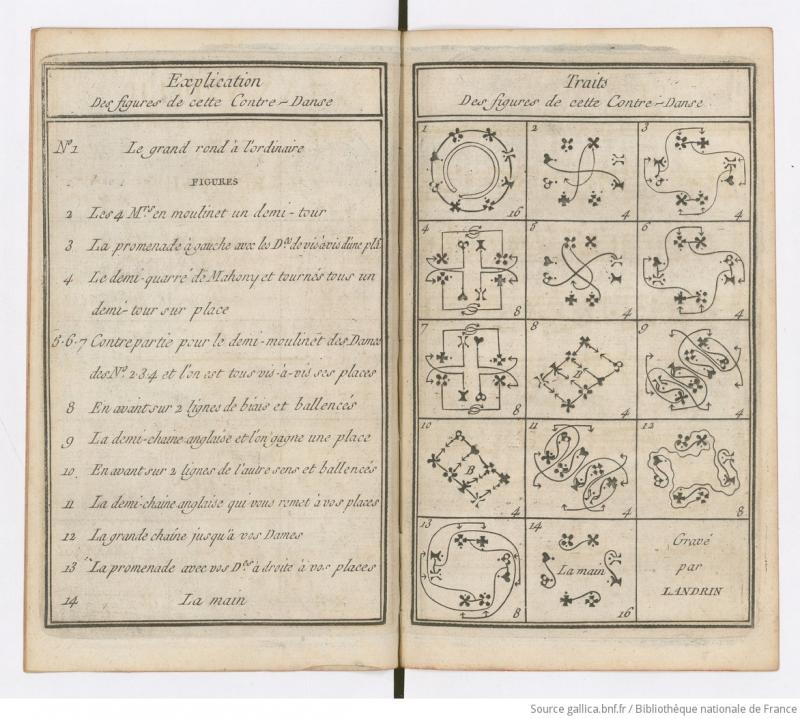 Explication
Des figures de cette Contre-Danse
Nº1 Le grand rond à l'ordinaire
FIGURES
2 Les 4 Mrs en moulinet un demi-tour
3 La promenade à gauche avec les Des de vis à vis d'une pla
4 Le demi-quarré de Mahony et tournés tous un
demi-tour sur place
5.6.7 Contrepartie pour le demi-moulinet des Dames
des Nº 2.3.4 et l'on est tous vis-à-vis ses places
8 En avant sur 2 lignes de biais et ballencés
9 La demi-chaine anglaise et l'on gagne une place
10 En avant sur 2 lignes de l'autre sens et ballencés
11 La demi-chaine anglaise qui vous remet à vos places
12 La grande chaîne jusqu'à vos Dames
13 La promenade avec vos Des à droite à vos places
14 La main
Traits
Des figures de cette Contre-Danse
1 2 3
16 4 4
4 5 6
8 4 4
7 8 9
B
8 4 4
10 11 12
B
4 4 8
13 14
La main
8 16
Gravé
par
LANDRIN
Source gallica.bnf.fr / Bibliothèque nationale de France